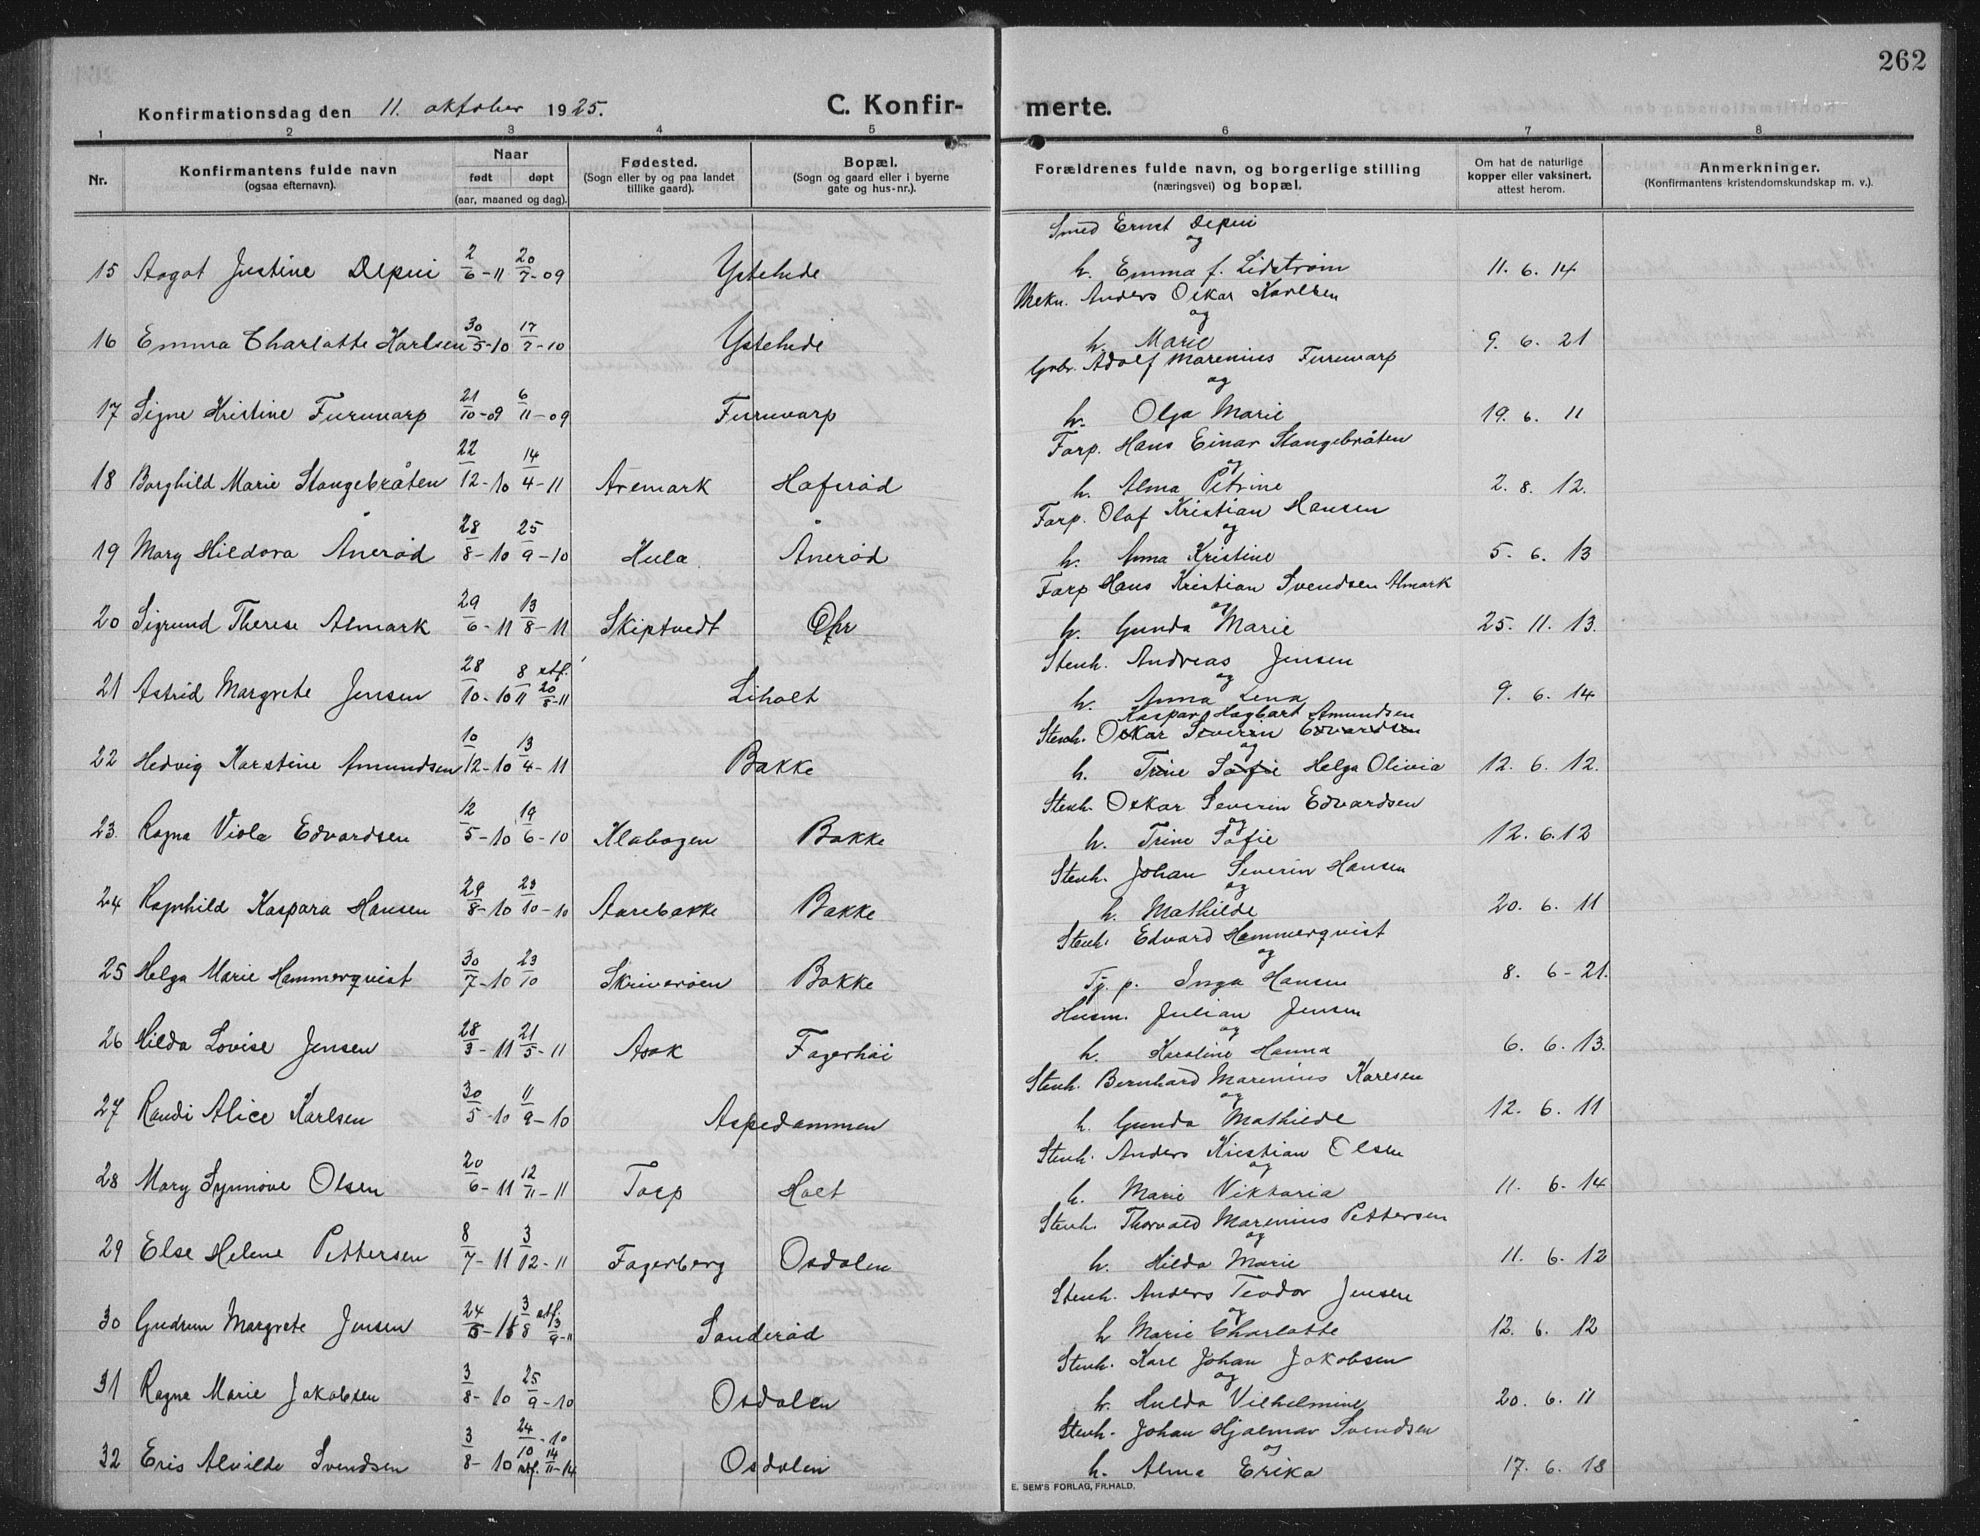 262
Konfirmationsdag den 11. oktober 1925. C. Konfir- merte.
1 2 3 4 5 6 7 8
Nr. Konfirmantens fulde navn (ogsaa efternavn). Naar født døpt (aar, maaned og dag). Fødested. (Sogn eller by og paa landet tillike gaard). Bopæl. (Sogn og gaard eller i byerne gate og hus-nr.). Forældrenes fulde navn, og borgerlige stilling (næringsvei) og bopæl. Om hat de naturlige kopper eller vaksinert, attest herom. Anmerkninger. (Konfirmantens kristendomskundskap m. v.).
Smed Ernst Depui
og
15 Aagot Justine Depui 2/6-11 20/7-09 Ystehede h. Emma f. Lidstrøm 11. 6. 14
Anders Oskar Karlsen
og
16 Emma Charlotte Karlsen 30/5-10 17/7-10 Ystehede h. Marie 9. 6. 21
Grbr. Adolf Marenius Furuvarp
og
17 Signe Kristine Furuvarp 21/10-09 6/11-09 Furuvarp h. Olga Marie 19. 6. 11
Forp. Hans Einar Stangebråten
og
18 Borghild Marie Stangebråten 22/12-10 14/4-11 Aremark Hafsrød h. Alma Petrine 2. 8. 12.
Forp. Olaf Kristian Hansen
og
19 Mary Hildora Ånerød 28/8-10 25/9-10 Hula Ånerød h. Anna Kristine 5. 6. 13
Forp Hans Kristian Svendsen Almark
og
20 Sigrund Therese Almark 29/6-11 13/8-11 Skiptvedt h. Gunda Marie 25. 11. 13.
Stenh. Andreas Jensen
og
21 Astrid Margrete Jensen 28/10-10 8/11 stf. 20/8-11 Liholt h. Anna Lena 9. 6. 14
Kaspar Hagbart Amundsen
Stenh. Oskar Severin Edvardsen
og
22 Hedvig Karstine Amundsen 10/12-10 13/4-11 Bakke h. Trine Sofie Helga Olivia 12. 6. 12.
Stenh. Oskar Severin Edvardsen
og
23. Ragna Viola Edvardsen 12/5-10 19/6-10 Klabogen Bakke h. Trine Sofie 12. 6. 12
Stenh. Johan Severin Hansen
og
24 Ragnhild Kaspara Hansen 29/8-10 23/10-10 Aarebakke Bakke h. Mathilde 20. 6. 11
Stenh. Edvard Hammerqvist
og
25 Helga Marie Hammerqvist 30/7-10 23/10 Skriverøen Bakke Tj. p. Inga Hansen 8. 6-21.
Husm. Julian Jensen
og
26 Hilda Lovise Jensen 28/3-11 21/5-11 Asak Fagerhøi h. Karoline Hanna 6. 6. 13.
Stenh. Bernhard Marenius Karlsen
og
27 Randi Alice Karlsen 30/5-10 11/9-10 Aspedammen h. Gunda Mathilde 12. 6. 11
Stenh. Anders Kristian Olsen
og
28 Mary Synnøve Olsen 20/6-11 12/11-11 Torp Holt h. Marie Viktoria 11. 6-14
Stenh. Thorvald Marenius Pettersen
og
29 Else Helene Pettersen 8/7-11 3/12-11 Fagerberg Osdalen h. Hilda Marie 11. 6. 12
Stenh. Anders Teodor Jensen
og
30 Gudrun Margrete Jensen 24/5-11 3/8 stf. 3/9-11 Sanderød h Marie Charlotte 12. 6. 12
Stenh. Karl Johan Jakobsen
og
31 Ragna Marie Jakobsen 3/8-10 25/9-10 Osdalen h. Hulda Vilhelmine 20. 6. 11
Stenh. Johan Hjalmar Svendsen
og
32 Eris Alvilde Svendsen 3/8-10 24/10-10 stf. 14/11-14 Osdalen h. Alma Erika 17. 6. 18
E. SEM'S FORLAG, FR.HALD.